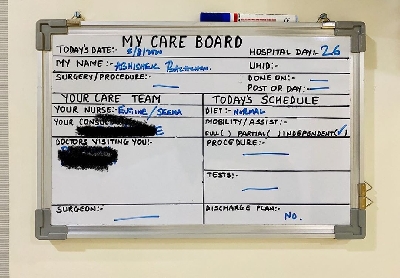 MY CARE BOARD
TODAY'S DATE:- 5/8/2020 HOSPITAL DAY:- 26
MY NAME:- ABHISHEK BACHCHAN. UHID:-
SURGERY/PROCEDURE:- DONE ON:-
POST OP DAY:-
YOUR CARE TEAM
YOUR NURSE:-
YOUR
DOCTORS VISITING YOU:-
SURGEON:-
TODAY'S SCHEDULE
DIET:- NORMAL
MOBILITY/ASSIST:-
FULL( ) PARTIAL( ) INDEPENDENT(✓)
PROCEDURE:-
TESTS:-
DISCHARGE PLAN:-
NO.